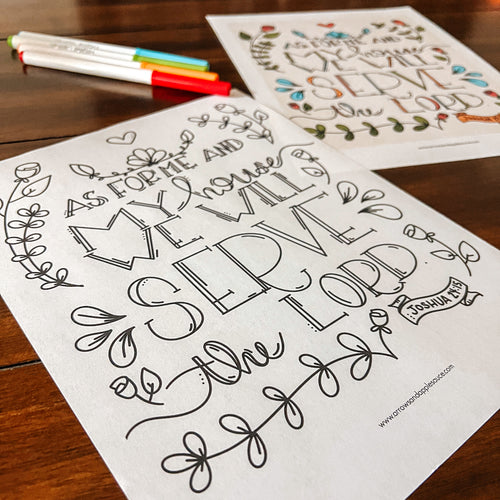 AS FOR ME AND
MY house
WE WILL
SERVE
the LORD.
JOSHUA 24:15
www.arrowsandapplesauce.com
AS FOR ME AND
MY house
WE WILL
SERVE
the LORD